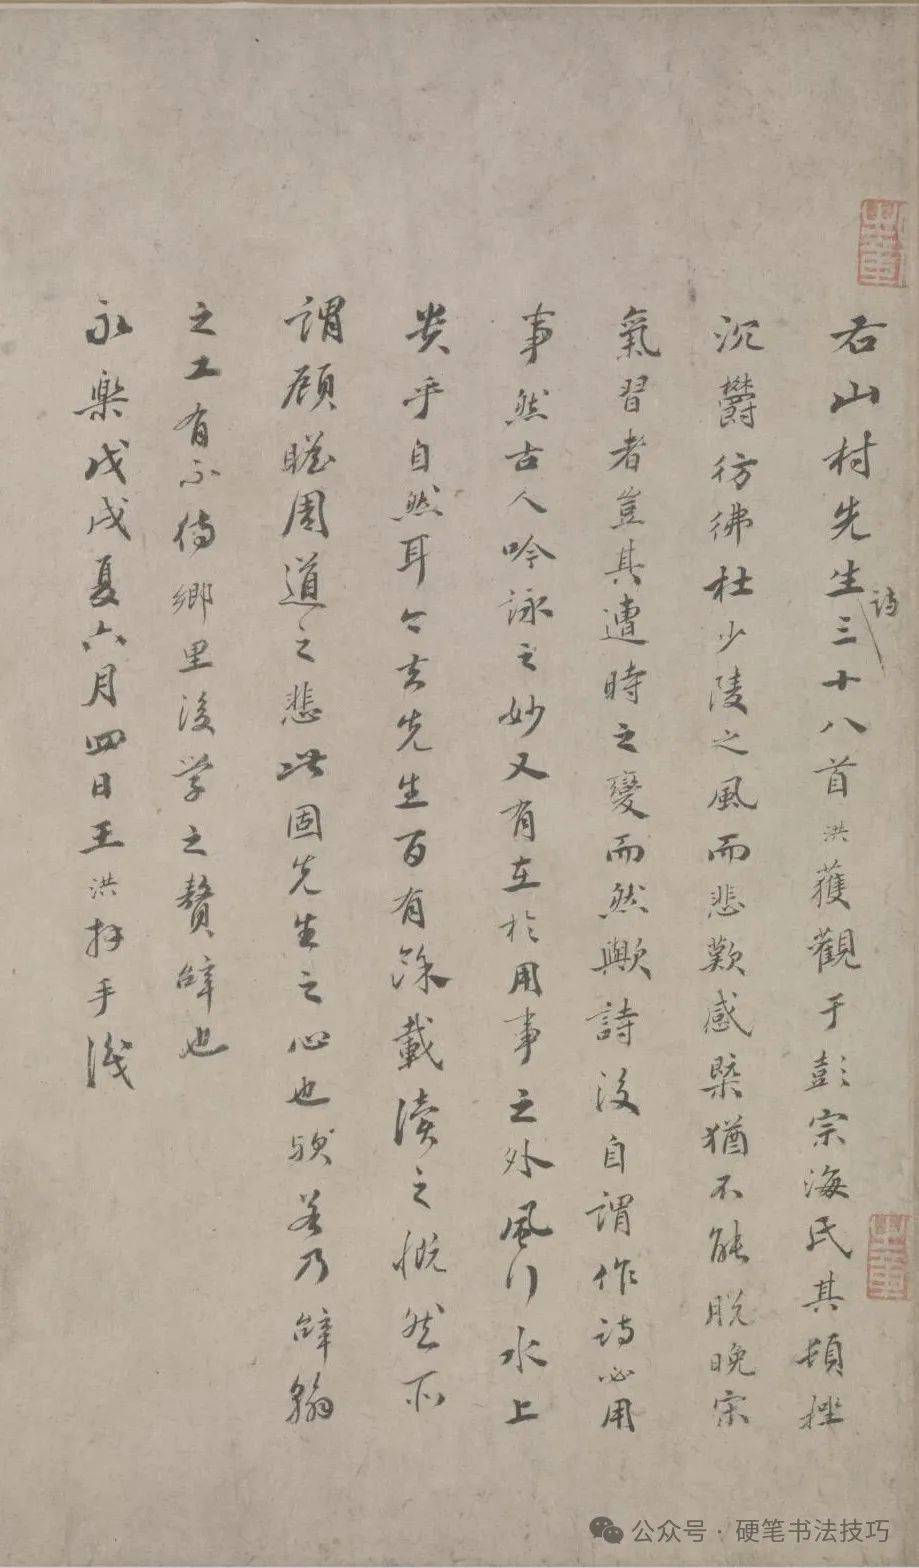 右山村先生詩三十八首洪獲觀于彭宗海氏其頓挫
沉鬱彷彿杜少陵之風而悲歎感槩猶不能脫晚宋
氣習者豈其遭時之變而然歟詩後自謂作詩必用
事然古人吟詠之妙又有在於用事之外風行水上
貴乎自然耳今去先生百有餘載讀之慨然所
謂顧瞻周道之悲此固先生之心也歟若乃辭翰
之工有不待鄉里後學之贅辭也
永樂戊戌夏六月四日王洪拜手識
公众号·硬笔书法技巧